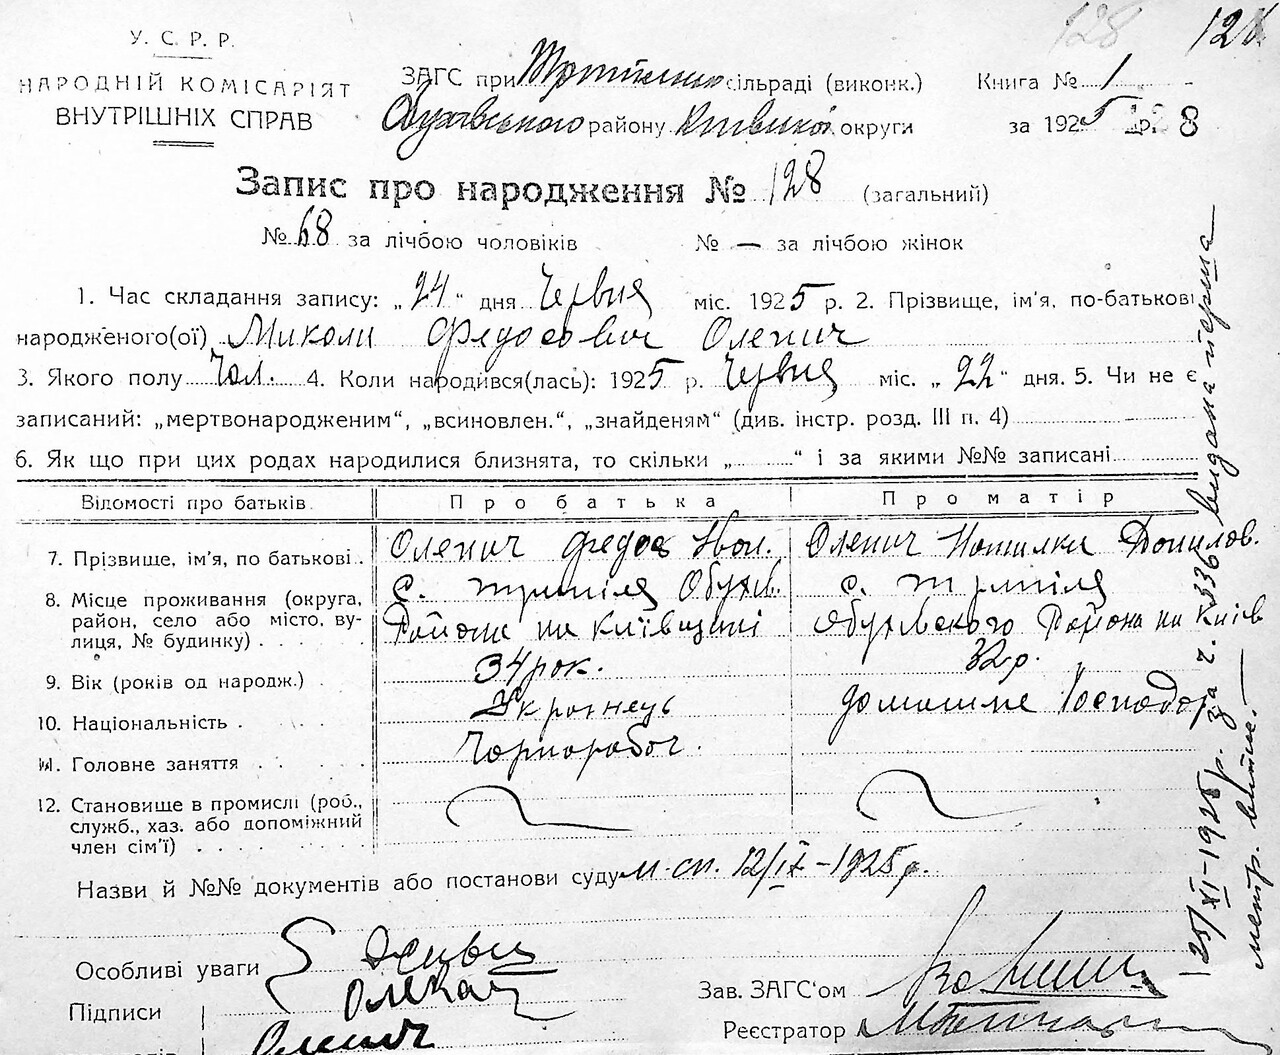 128 128
У. С. Р. Р.
НАРОДНІЙ КОМІСАРІЯТ
ВНУТРІШНІХ СПРАВ
ЗАГС при сільраді (виконк.)
Обухівського району Київської округи
Книга № 1
за 1925 р. 128
Запис про народження № 128 (загальний)
№ 68 за лічбою чоловіків № — за лічбою жінок
1. Час складання запису: „24“ дня Червня міс. 1925 р. 2. Прізвище, ім'я, по-батькові
народженого(ої) Миколи Федосович Оленич
3. Якого полу Чол. 4. Коли народився(лась): 1925 р. Червня міс. „22“ дня. 5. Чи не є
записаний: „мертвонародженим“, „всиновлен.“, „знайденям“ (див. інстр. розд. III п. 4)
6. Як що при цих родах народилися близнята, то скільки „ “ і за якими №№ записані
Відомості про батьків Про батька Про матір
7. Прізвище, ім'я, по батькові Оленич Федос Оленич Данилов.
8. Місце проживання (округа, район, село або місто, вулиця, № будинку)
с. Трипілля Обухів. Района на Київщині
с. Трипілля Обухівського Района на Київ
9. Вік (років од народж.) 34 рок. 32 р.
10. Національність Украінець домашнє Господар
11. Головне заняття Чорнороboч.
12. Становище в промислі (роб.,
служб., хаз. або допоміжний
член сім'ї)
Назви й №№ документів або постанови суду м. сп. 12/IX–1925 р.
Особливі уваги
Підписи
Оленич
Зав. ЗАГС'ом
Реєстратор
125/XI-1925 р. за ч. 336 видана перша
метр. витяг.